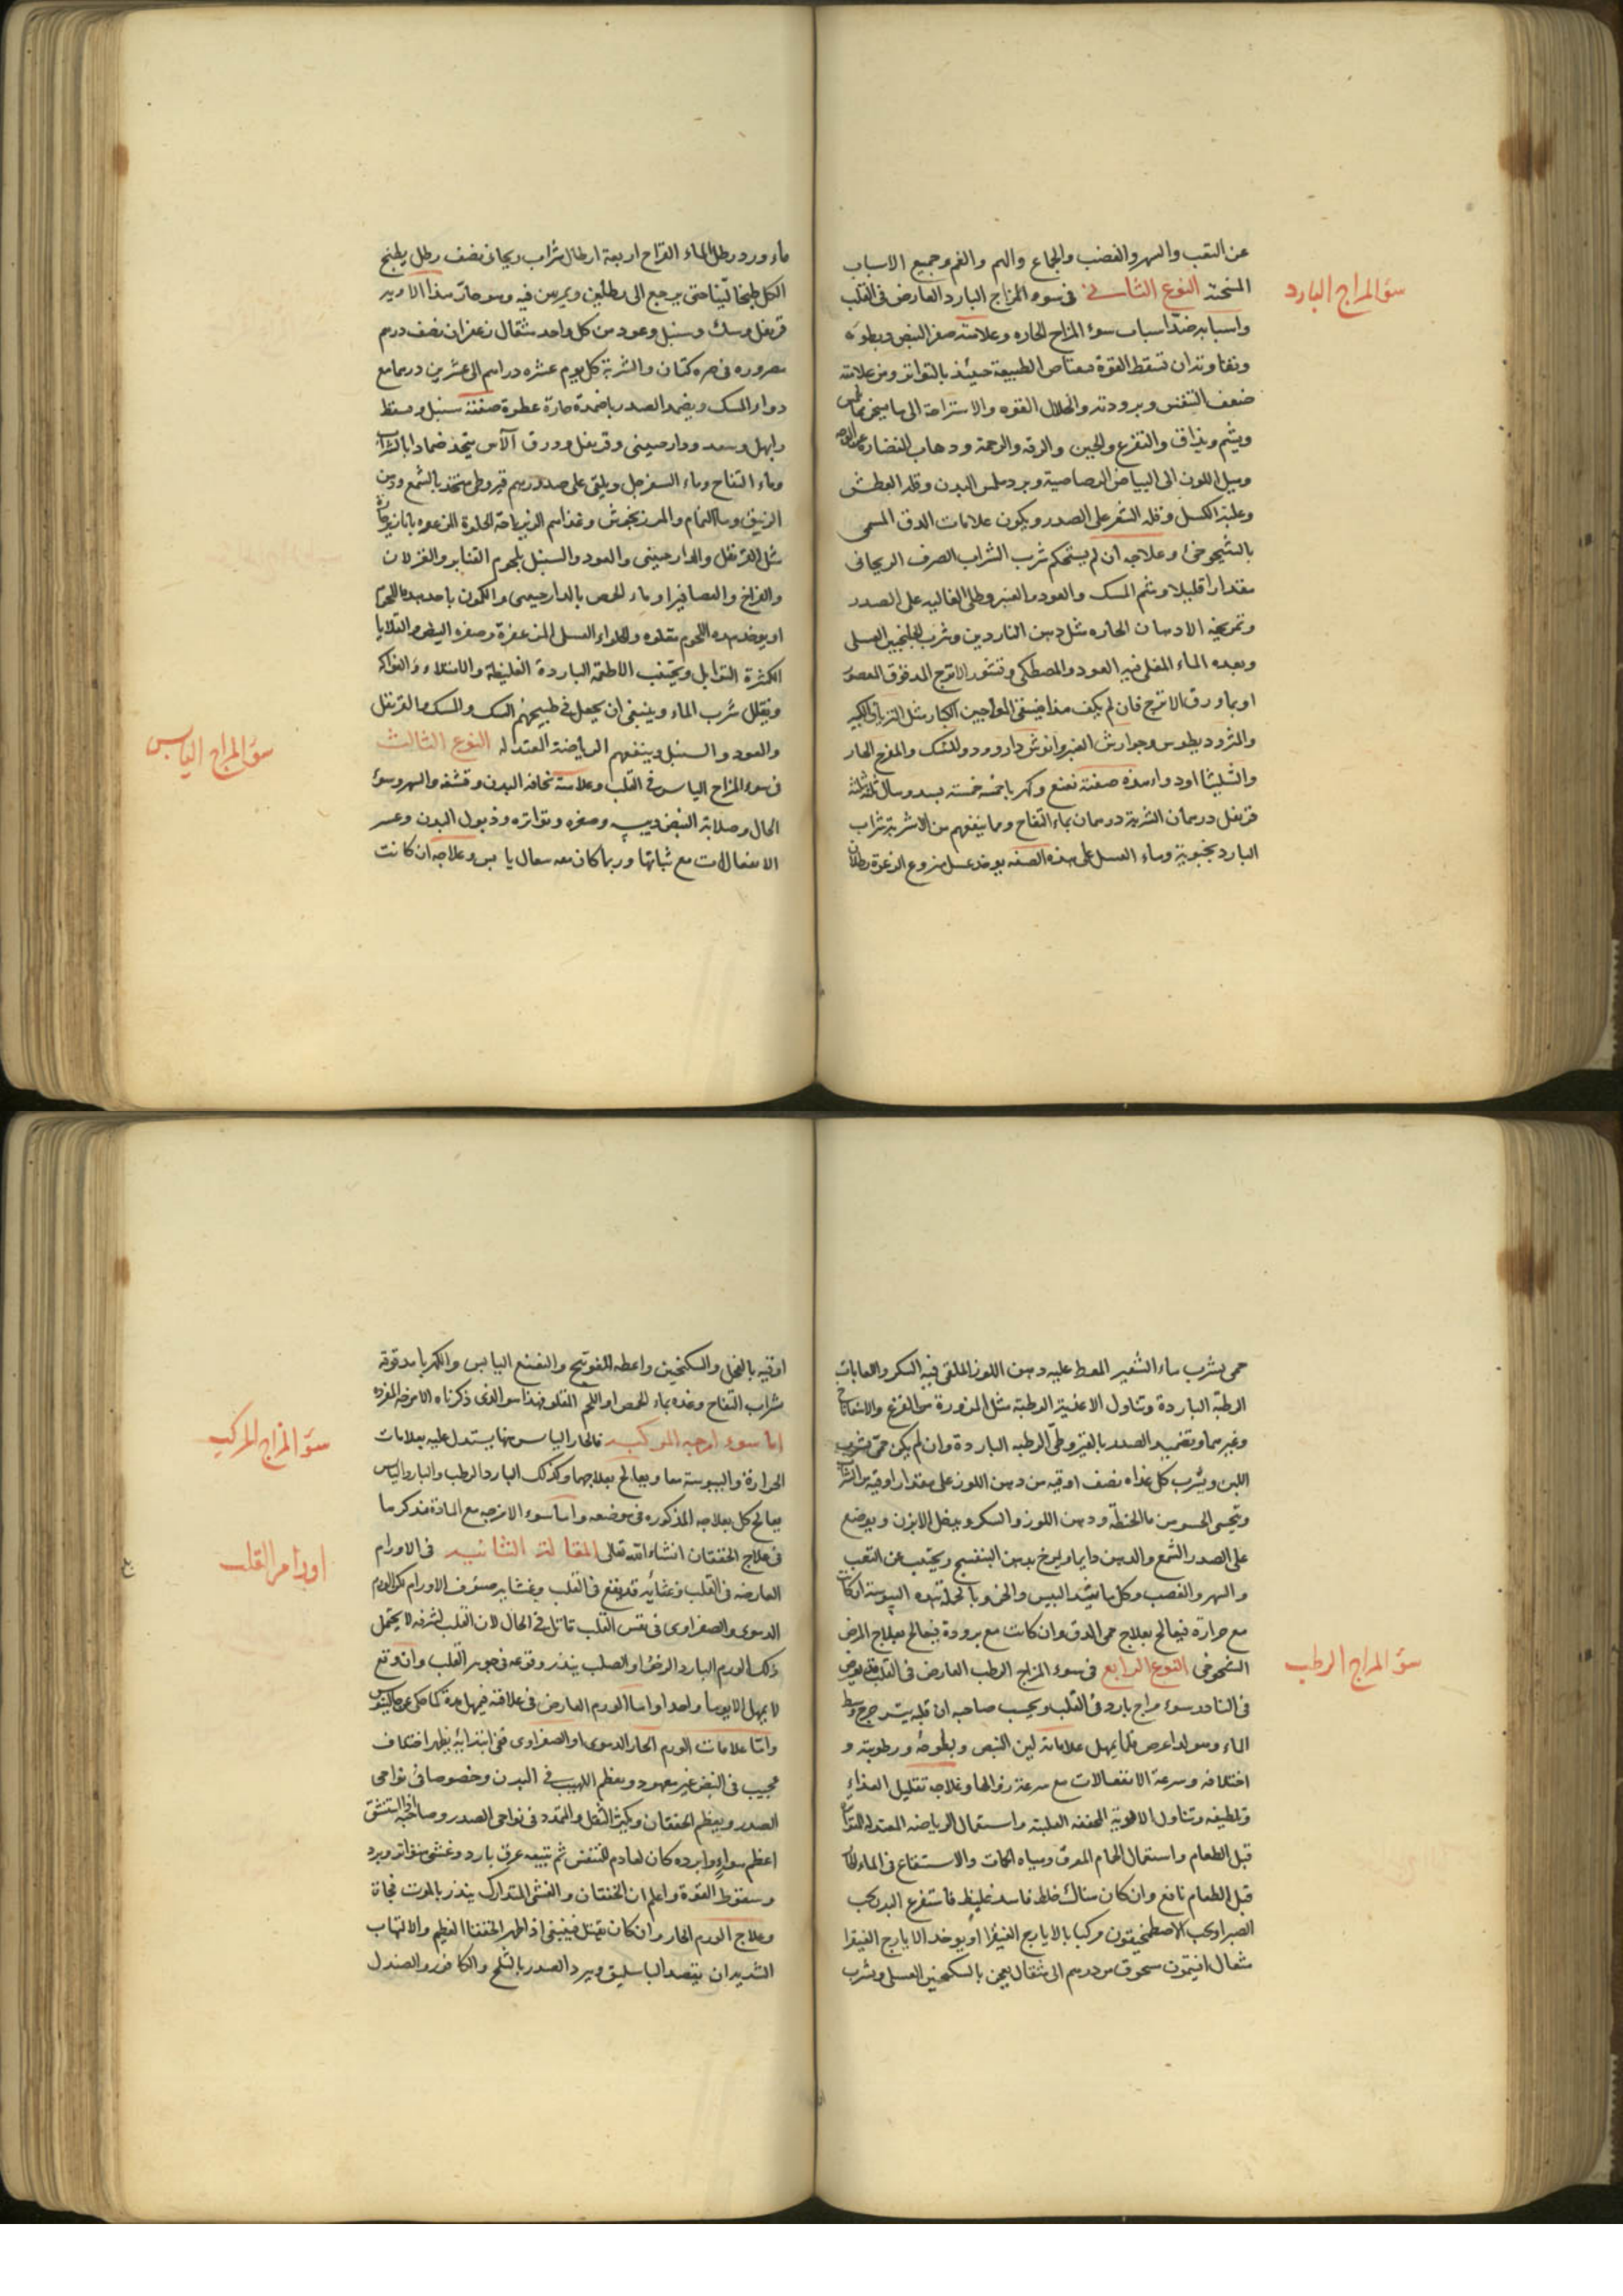 عن التعب والسهر والغضب والجماع والهم والغم وجميع الاسباب
المسخنة النوع الثاني في سوء المزاج البارد العارض في القلب
سؤ المزاج البارد
واسبابه ضد اسباب سوء المزاج الحاره وعلامته صغر النبض وبطوءه
وتفاوته الا ان تسقط القوة الطبيعة حينئذ بالتواتر ومن علامته
ضعف التنفس وبرودته وانحلال القوه والاستراحة الى ما يسخن مما
ويشم ويذاق والتفزع والجبن والرقه والرحمة وذهاب النضاره عن
وميل اللون الى البياض الرصاصية وبرد ملمس البدن وقلة العطش
وغلبة الكسل وقله الشعر على الصدر ويكون علامات الدق المسمى
بالشيخوخي وعلاجه ان لم يستحكم شرب الشراب الصرف الريحاني
مقدارا قليلا وشم المسك والعود والعنبر وطلي الغاليه على الصدر
وتمريخه الادهان الحاره مثل دهن الناردين وشرب الجلنجبين العسلي
وبعده الماء المغلي فيه العود والمصطكي وقشور الاترج المدقوق المعصور
او بماورق الاترج فان لم يكف هذا فيسقى المعاجين الكبار مثل الترياق الكبير
والمثروديطوس وجوارش العنبر وانوش دارو ودواء المسك والمفرح الحار
والشليثا او دواء هذه صفته نعنع وكهربا خمسه خمسة بسد وسال ثلثه ثلثة
قرنفل درهمان الشربة درهمان بماء التفاح ومما ينفعهم من الاشربة شراب
البادرنجبوية وماء العسل على هذه الصفه يوخذ عسل منزوع الرغوة رطلان
ماء ورد رطل الماء القراح اربعة ارطال شراب ريحاني نصف رطل يطبخ
الكل طبخا لينا حتى يرجع الى رطلين ويمرس فيه وهو حار هذا الادويه
قرنفل وسك وسنبل وعود من كل واحد مثقال زعفران نصف درهم
مصروره في خرقه كتان والشربة كل يوم عشره دراهم الى عشرين درهما مع
دواء المسك ويضمد الصدر باضمدة حارة عطرة صفته سنبل وقسط
وابهل وسعد ودارصيني وقرنفل وورق الآس يتخذ ضمادا بالشراب
وماء التفاح وماء السفرجل ويلقى على صدورهم قيروطي متخذ بالشمع ودهن
الزنبق وماء النمام والمرزنجوش وغذاهم الزيرباجة الحلوة المزعفره بابازير حارة
مثل القرنفل والدارصيني والعود والسنبل بلحوم القنابر والغزلان
والفراخ والعصافير او ماء الحمص بالدارصيني والكمون باحد هذه اللحوم
او يوخذ هذه اللحوم مقلوه وحلواء العسل المزعفرة وصفرة البيض والقلايا
الكثيرة التوابل ويجتنب الاطعمة الباردة الغليظة والامتلاء والفواكه
ويقلل شرب الماء وينبغي ان يجعل في طبيخهم السك والمسك والقرنفل
والعود والسنبل وينفعهم الرياضة المعتدله النوع الثالث
سؤ المزاج اليابس
في سوء المزاج اليابس في القلب وعلامته نحافه البدن وقشفه والسهر وسوء
الحال وصلابة النبض وصغره وتواتره وذبول البدن وعسر
الانفعالات مع ثباتها وربما كان معه سعال يابس وعلاجه ان كانت
حمى بشرب ماء الشعير المقطر عليه دهن اللوز الملقى فيه السكر والعابات
الرطبة الباردة وتناول الاغذية الرطبة مثل المزورة من القرع والاسفاناخ
وغيرهما وتضميد الصدر بالقيروطي الرطبه الباردة وان لم يكن حمى يشرب
اللبن ويشرب كل غداه نصف اوقيه من دهن اللوز على مقدار اوقية من الشراب
ويتحسى الحسو من ماء الحنطة ودهن اللوز والسكر ويدخل الابزن ويوضع
على الصدر الشمع والدهن دايما ويمرخ بدهن البنفسج ويجتنب عن التعب
والسهر والغضب وكل ما يشد اليبس والحر وبالجملة هذه اليبوسة ان كانت
مع حرارة فيعالج بعلاج حمى الدق وان كانت مع برودة فيعالج بعلاج المرض
الشيخوخي النوع الرابع في سوء المزاج الرطب العارض في القلب
سؤ المزاج الرطب
في النادر سوء مزاج بارد في القلب ويحسب صاحبه ان قلبه يترجرج وسط
الماء وهو لو اعرض قلما يمهل علاماته لين النبض وبطوءه ورطوبته و
اختلافه وسرعة الانفعالات مع سرعة زوالها وعلاجه تقليل الغذاء
وتلطيفه وتناول الادوية المجففه القلبية واستعمال الرياضه المعتدله
قبل الطعام واستعمال الحمام المعرق ومياه الحمات والاستنقاع في الماء
قبل الطعام نافع وان كان هناك خلط فاسد غليظ فاستفرغ البدن بحب
الصبر او بحب الاصطمخيقون مركبا بالايارج الفيقرا او يوخذ الايارج الفيقرا
مثقال افتيمون مسحوق من درهم الى مثقال يعجن بالسكنجبين العسلي ويشرب
اوقيه بالفجل والسكنجبين واعطه الفوتنج والنعنع اليابس والكهربا مدقوقة
بشراب التفاح وغذه بماء الحمص او اللحم المقلو فهذا هو الذي ذكرناه الامزجه المفرده
سؤ المزاج المركب
اما سوء مزجه المركبه فالحار اليابس منها يستدل عليه بعلامات
الحرارة واليبوسة معا ويعالج بعلاجهما وكذلك البارد الرطب والبارد اليابس
يعالج كل بعلاجه المذكوره في موضعه واما سوء الامزجه مع المادة فنذكرها
في علاج الخفقان انشاء الله تعالى المقالة الثانيه في الاورام
اورام القلب
العارضه في القلب وغشائه قد يقع في القلب وغشايه صنوف الاورام لكن الورم
الدموي والصفراوي في نفس القلب قاتل في الحال لان القلب لشرفه لا يحتمل
ذلك والورم البارد الرخو او الصلب يندر وقوعه في جوهر القلب وان وقع
لا يمهل الا يوما واحدا واما الورم العارض في علاقته فيمهل مدة كما حكى عن جالينوس
واما علامات الورم الحار الدموي او الصفراوي ففي ابتدائه يظهر اختلاف
عجيب في النبض غير معهود ويعظم اللهيب في البدن وخصوصا في نواحي
الصدر ويعظم الخفقان ويكثر الثقل والتمدد في نواحي الصدر وصاحبه اذا استنشق
اعظم هواء وابرده كان كعادم للتنفس ثم يتبعه عرق بارد وغشي متواتر وبرد
وسقوط القوة واعلم ان الخفقان والغشي المتدارك ينذر بالموت فجاة
وعلاج الورم الحار وان كان يقتل فينبغي اذا ظهر الخفقان العظيم والالتهاب
الشديد ان يفصد الباسليق ويبرد الصدر بالثلج والكافور والصندل